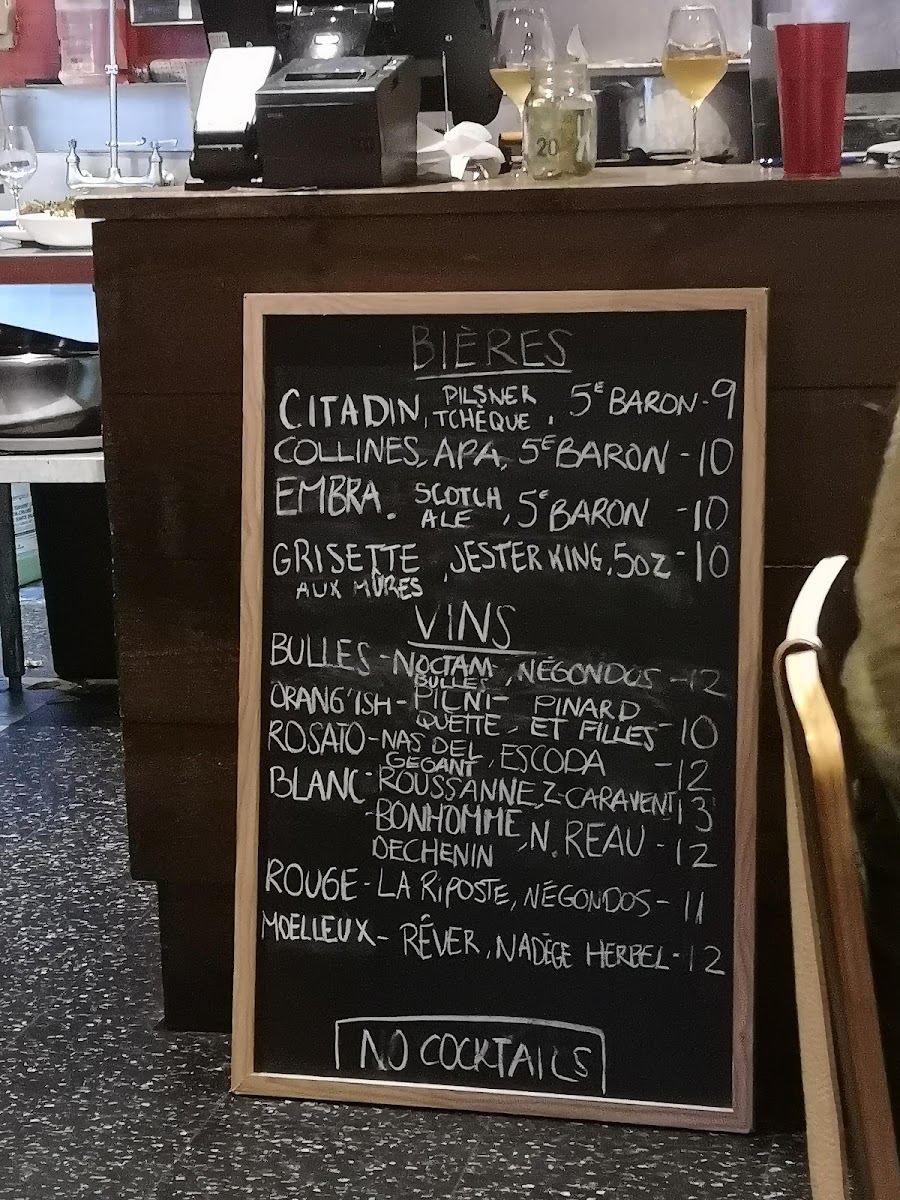 20
BIÈRES
CITADIN, PILSNER TCHÈQUE, 5E BARON - 9
COLLINES, APA, 5E BARON - 10
EMBRA. SCOTCH ALE, 5E BARON - 10
GRISETTE AUX MÛRES, JESTER KING, 5OZ - 10
VINS
BULLES - NOCTAMBULLES, NÉGONDOS - 12
ORANG'ISH - PICNIQUETTE, PINARD ET FILLES - 10
ROSATO - NAS DEL GEGANT, ESCODA - 12
BLANC - ROUSSANNEZ - CARAVENT 13
- BONHOMME DECHENIN, N. REAU - 12
ROUGE - LA RIPOSTE, NÉGONDOS - 11
MOELLEUX - RÉVER, NADÈGE HERBEL - 12
NO COCKTAILS